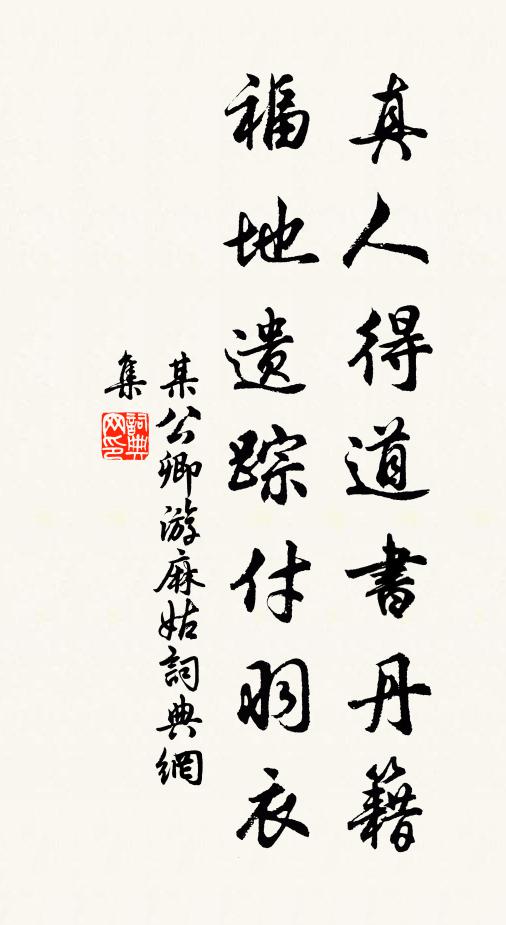 真人得道書丹籍
福地遺踪付羽衣
某公卿游麻姑詞典網
集
詞典
网印